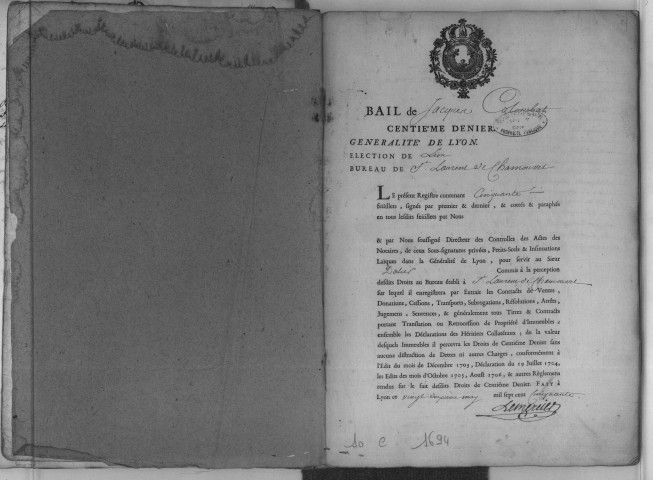 BAIL de Jacques
CENTIÉME DENIER.
GENERALITÉ DE LYON.
ELECTION DE Lion
BUREAU DE St Laurent de Chamousset
LE présent Registre contenant Cinquante
feuillets, signés par premier & dernier, & cottés & paraphés
en tous lesdits feuillets par Nous
& par Nous soussigné Directeur des Controlles des Actes des
Notaires, de ceux Sous-signatures privées, Petits-Scels & Insinuations
Laïques dans la Généralité de Lyon, pour servir au Sieur
Commis à la perception
desdits Droits au Bureau établi à St Laurent de Chamousset
sur lequel il enregistrera par Extraits les Contracts de Ventes,
Donations, Cessions, Transports, Subrogations, Résolutions, Arrêts,
Jugemens, Sentences, & généralement tous Titres & Contracts
portant Translation ou Retrocession de Propriété d'Immeubles;
ensemble les Déclarations des Héritiers Collatéraux; de la valeur
desquels Immeubles il percevra les Droits de Centième Denier sans
aucune distraction de Dettes ni autres Charges, conformément à
l'Edit du mois de Décembre 1703, Déclaration du 19 Juillet 1704,
les Edits des mois d'Octobre 1705, Aoust 1706, & autres Réglemens
rendus sur le fait desdits Droits de Centième Denier. FAIT à
Lyon ce vingt may mil sept cent cinquante
10 C 1694